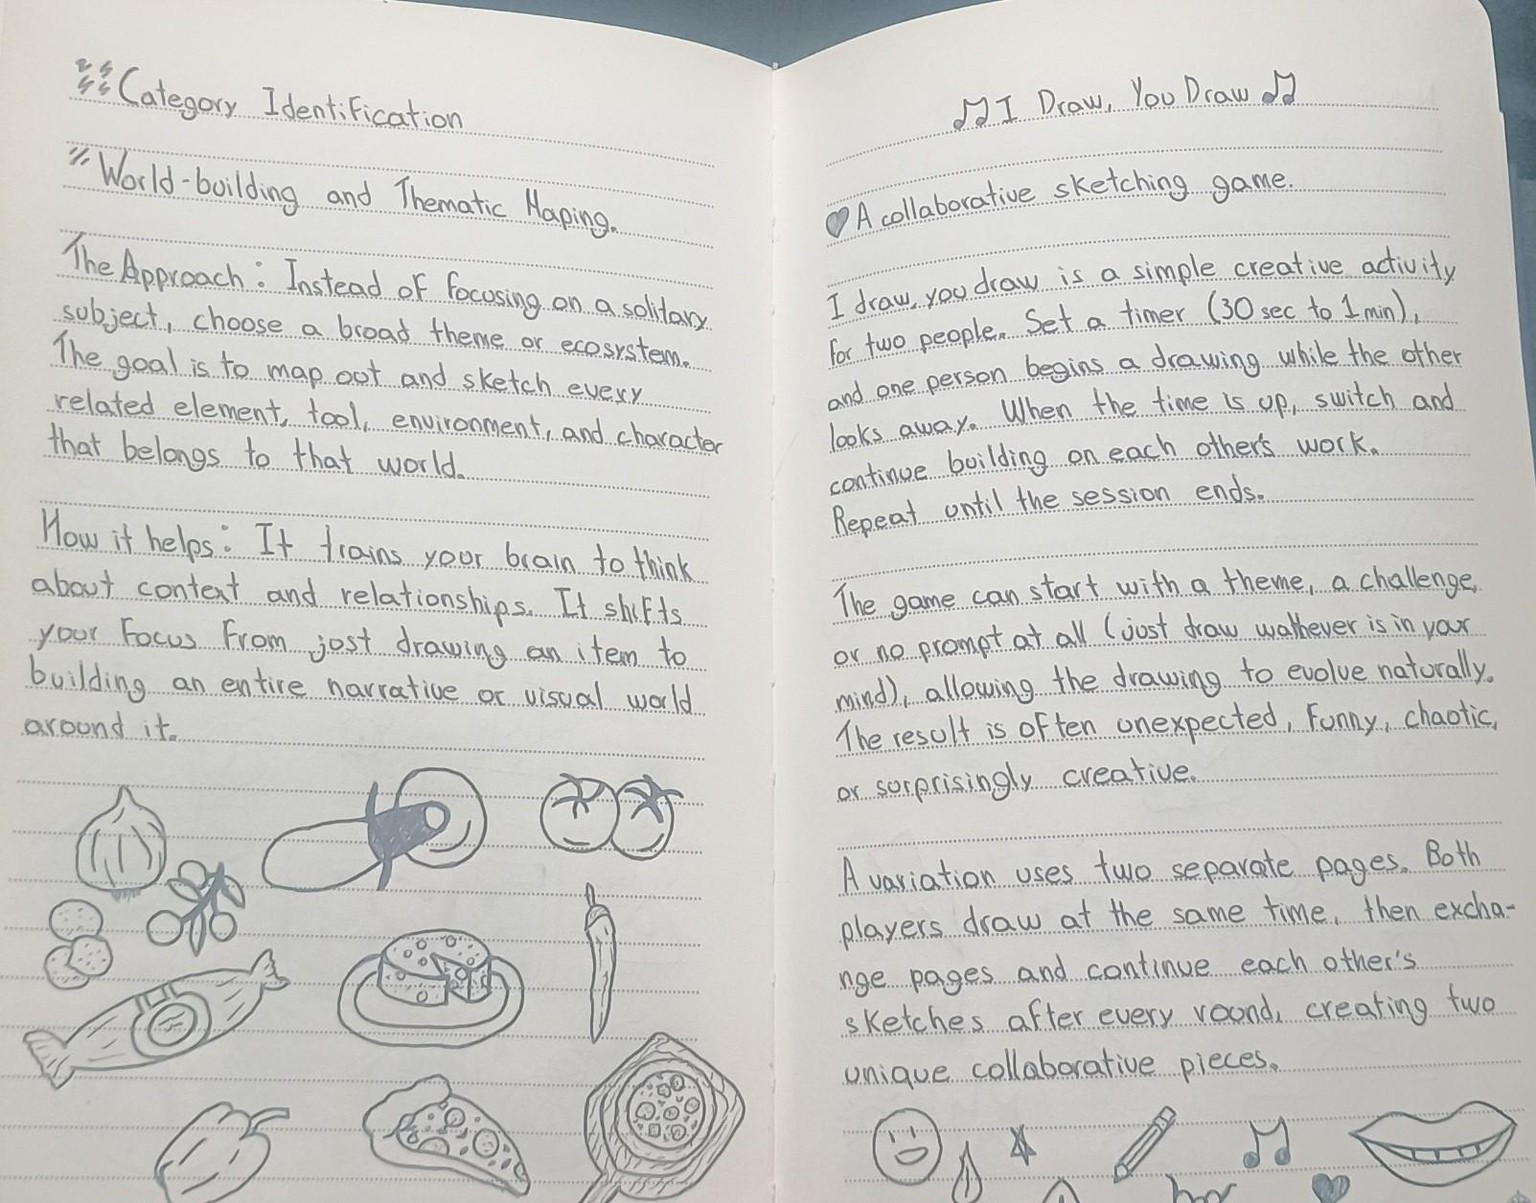 Category Identification
World-building and Thematic Maping.
The Approach: Instead of focusing on a solitary
subject, choose a broad theme or ecosystem.
The goal is to map out and sketch every
related element, tool, environment, and character
that belongs to that world.
How it helps: It trains your brain to think
about context and relationships. It shifts
your focus from just drawing an item to
building an entire narrative or visual world
around it.
I Draw, You Draw
A collaborative sketching game.
I draw, you draw is a simple creative activity
for two people. Set a timer (30 sec to 1 min),
and one person begins a drawing while the other
looks away. When the time is up, switch and
continue building on each other's work.
Repeat until the session ends.
The game can start with a theme, a challenge,
or no prompt at all (just draw wathever is in your
mind), allowing the drawing to evolve naturally.
The result is often unexpected, funny, chaotic,
or surprisingly creative.
A variation uses two separate pages. Both
players draw at the same time, then excha-
nge pages and continue each other's
sketches after every round, creating two
unique collaborative pieces.